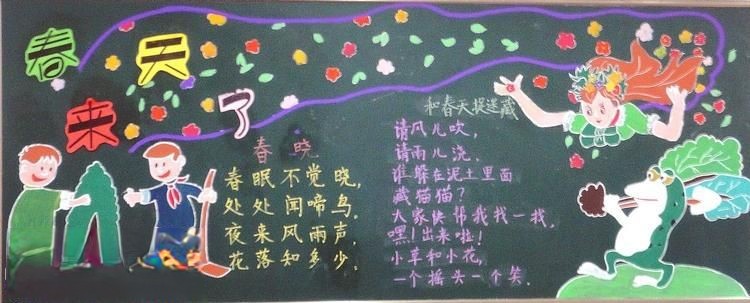 春天来了
春晓
春眠不觉晓,
处处闻啼鸟。
夜来风雨声,
花落知多少。
和春天捉迷藏
请风儿吹,
请雨儿浇.
谁躲在泥土里面
藏猫猫?
大家快帮我找一找,
嘿!出来啦!
小草和小花,
一个摇头一个笑.